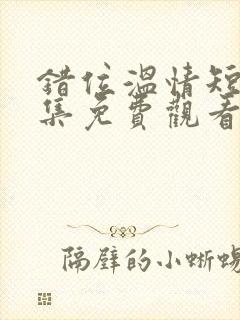 錯位溫情短
集免費觀看
隔壁的小蜥蜴